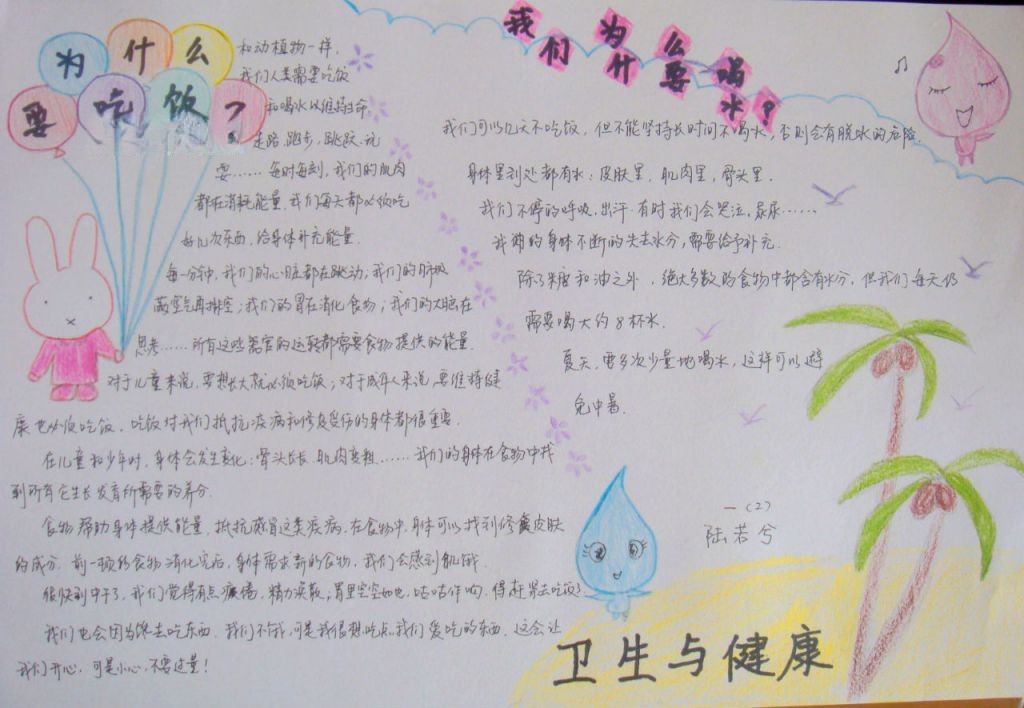 为什么
要吃饭?
和动植物一样,
我们人类需要吃饭
和喝水以维持生命,
走路,跑步,跳跃,玩
耍……每时每刻,我们的肌肉
都在消耗能量,我们每天都必须吃
好几次东西,给身体补充能量.
每一分钟,我们的心脏都在跳动;我们的肺吸
满空气再排空;我们的胃在消化食物;我们的大脑在
思考……所有这些器官的运转都需要食物提供的能量.
对于儿童来说,要想长大就必须吃饭;对于成年人来说,要维持健
康也必须吃饭,吃饭对我们抵抗疾病和修复受伤的身体都很重要.
在儿童和少年时,身体会发生变化:骨头长长,肌肉变粗……我们的身体在食物中找
到所有它生长发育所需要的养分.
食物帮助身体提供能量,抵抗感冒这类疾病,在食物中,身体可以找到修复皮肤
的成分.前一顿的食物消化完后,身体需求新的食物,我们会感到饥饿.
很快到中午了,我们觉得有点疲倦,精力涣散;胃里空空如也,咕咕作响,得赶紧去吃饭!
我们也会因为馋去吃东西,我们不饿,可是我很想吃点我们爱吃的东西,这会让
我们开心,可是小心,不要过量!
我们为什么要喝
水?
我们可以几天不吃饭,但不能坚持长时间不喝水,否则会有脱水的危险.
身体里到处都有水:皮肤里,肌肉里,骨头里.
我们不停的呼吸,出汗.有时我们会哭泣,尿尿……,
我们的身体不断的失去水分,需要给予补充.
除了糖和油之外,绝大多数的食物中都含有水分,但我们每天仍
需要喝大约8杯水.
夏天,要多次少量地喝水,这样可以避
免中暑.
一(2)
陆若兮
卫生与健康